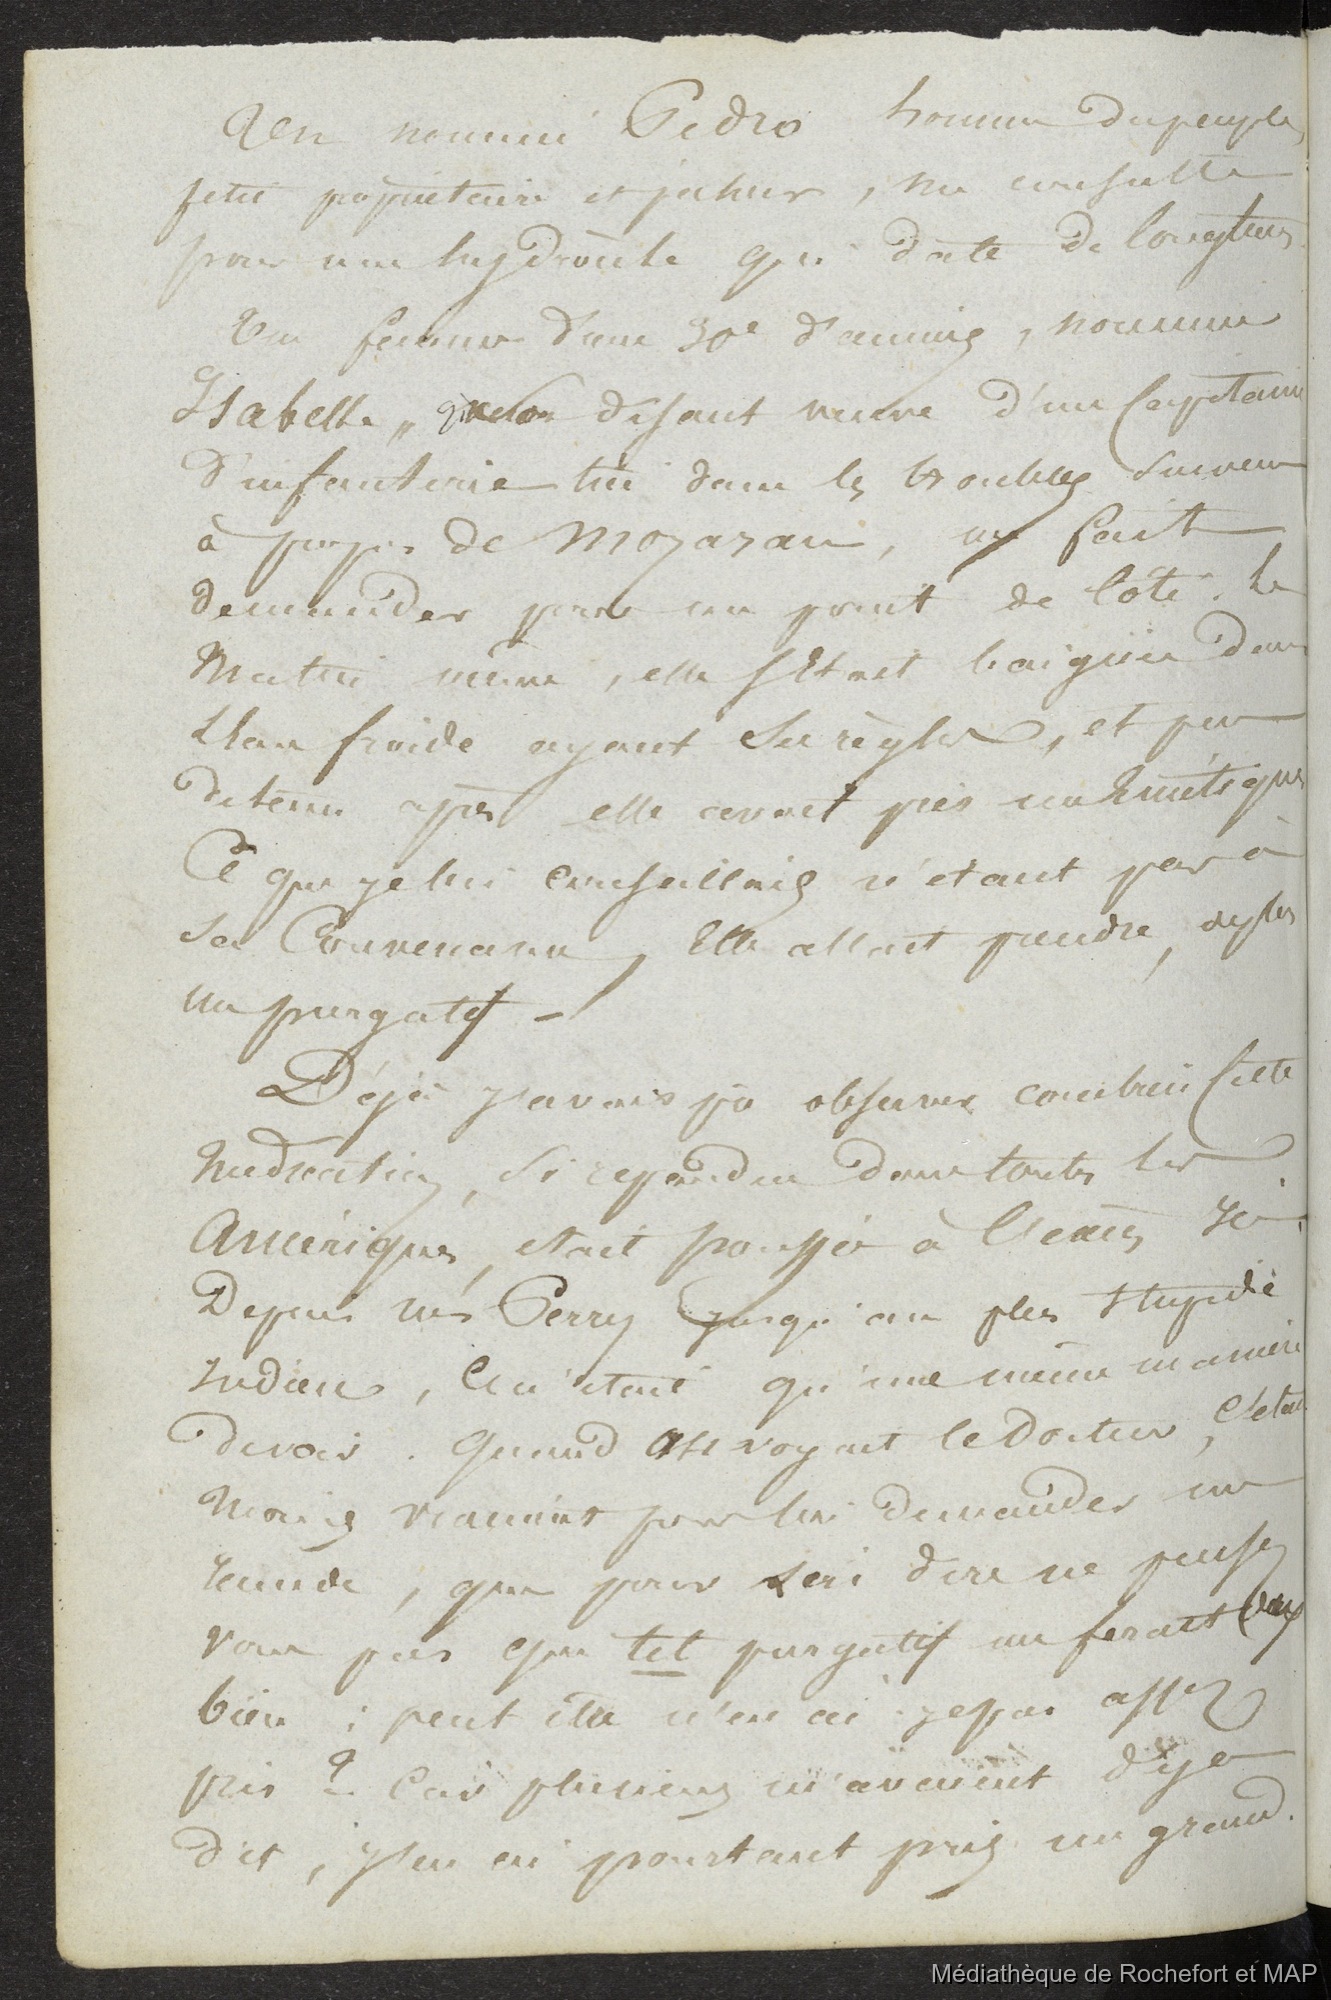 Un nommé Pedro homme du peuple,
petit propriétaire et pêcheur, me consulte
pour une hydrocèle qui date de longtems.
Une femme d'une 30e d'années, nommée
Isabelle, se disant veuve d'un Capitaine
d'infanterie tué dans les troubles survenus
à propos de Mazazan, me fait
demander pour un point de côté. Le
Matin même, elle s'était baignée dans
l'Eau froide ayant ses règles, et peu
de tems après elle avait pris un Emétique
Ce que je lui conseillais n'étant pas à
sa Convenance, Elle allait prendre, de plus
un purgatif –
Déjà J'avais pu observer combien Cette
Médication, si repandue dans toutes les
Amériques, était poussée à l'excès Ici.
Depuis Mrs Perry jusqu'au plus stupide
Indien, Ce n'était qu'une même manière
de voir. Quand on voyait le Docteur, C'était
Moins vraiment pour lui demander un
remède, que pour lui dire ne pensez
vous pas que tel purgatif me ferait du
bien ; peut être n'en ai-je pas assez
pris ? Car plusieurs m'avaient déja
dit, J'en ai pourtant pris un grand.
Médiathèque de Rochefort et MAP